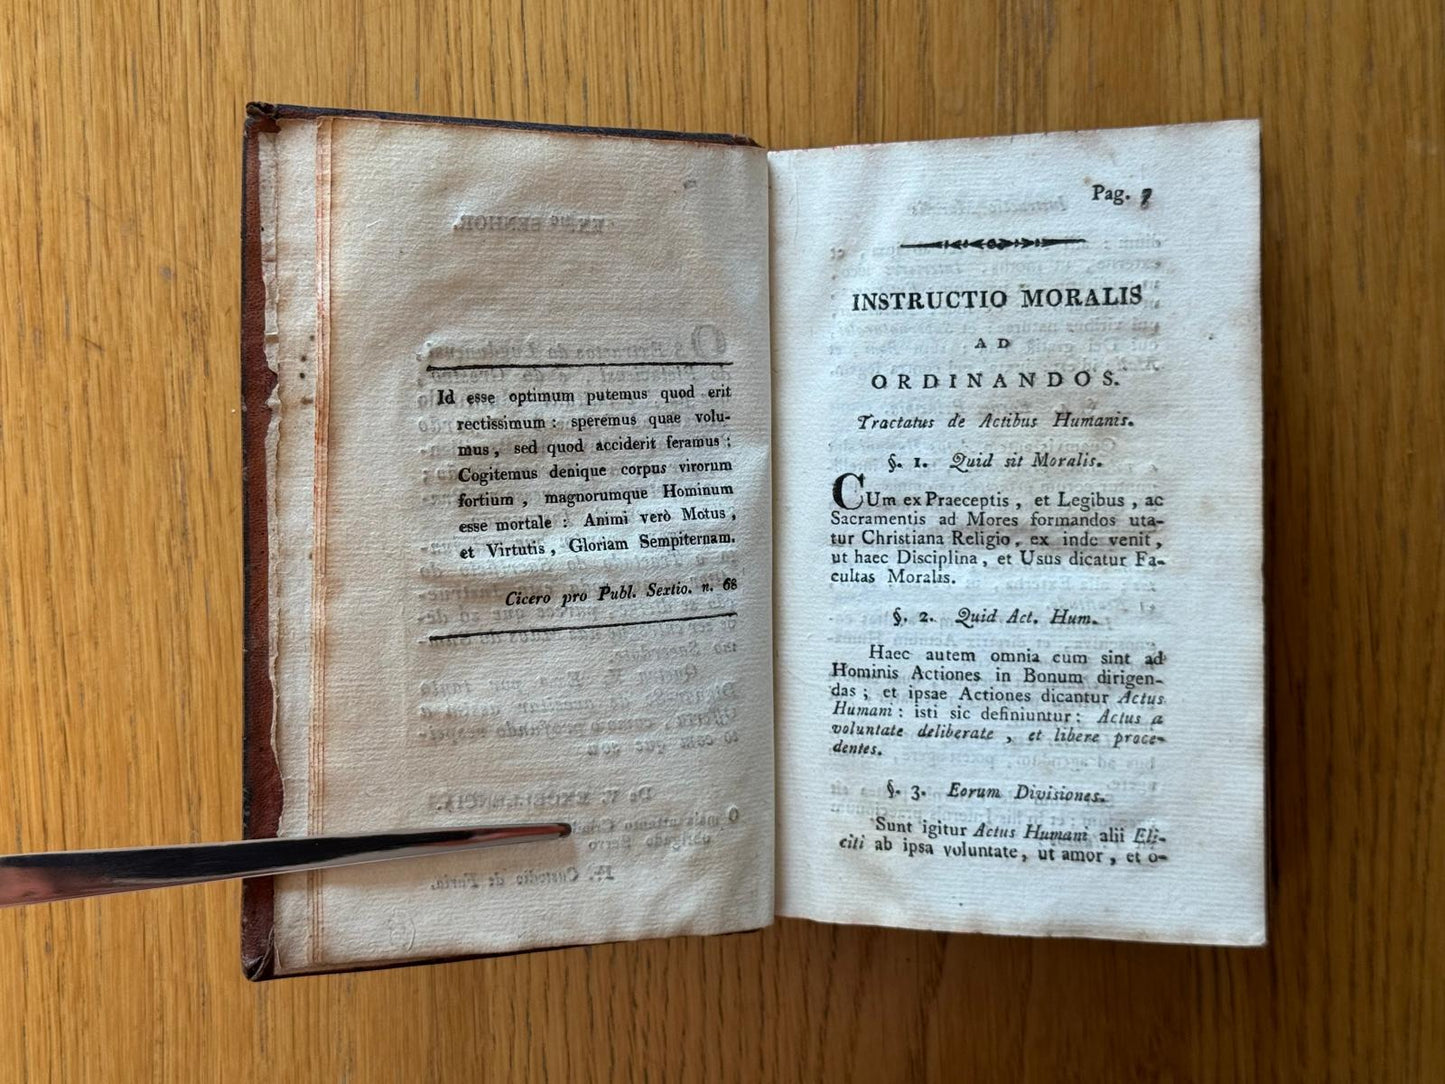 Id esse optimum putemus quod erit
rectissimum : speremus quae volu-
mus, sed quod acciderit feramus :
Cogitemus denique corpus virorum
fortium , magnorumque Hominum
esse mortale : Animi verò Motus ,
et Virtutis , Gloriam Sempiternam.
Cicero pro Publ. Sextio. n. 68
Pag.
INSTRUCTIO MORALIS
AD
ORDINANDOS.
Tractatus de Actibus Humanis.
§. 1. Quid sit Moralis.
CUm ex Praeceptis , et Legibus , ac
Sacramentis ad Mores formandos uta-
tur Christiana Religio, ex inde venit,
ut haec Disciplina, et Usus dicatur Fa-
cultas Moralis.
§. 2. Quid Act. Hum.
Haec autem omnia cum sint ad
Hominis Actiones in Bonum dirigen-
das ; et ipsae Actiones dicantur Actus
Humani : isti sic definiuntur : Actus a
voluntate deliberate , et libere proce-
dentes.
§. 3. Eorum Divisiones.
Sunt igitur Actus Humani alii Eli-
citi ab ipsa voluntate, ut amor , et o-